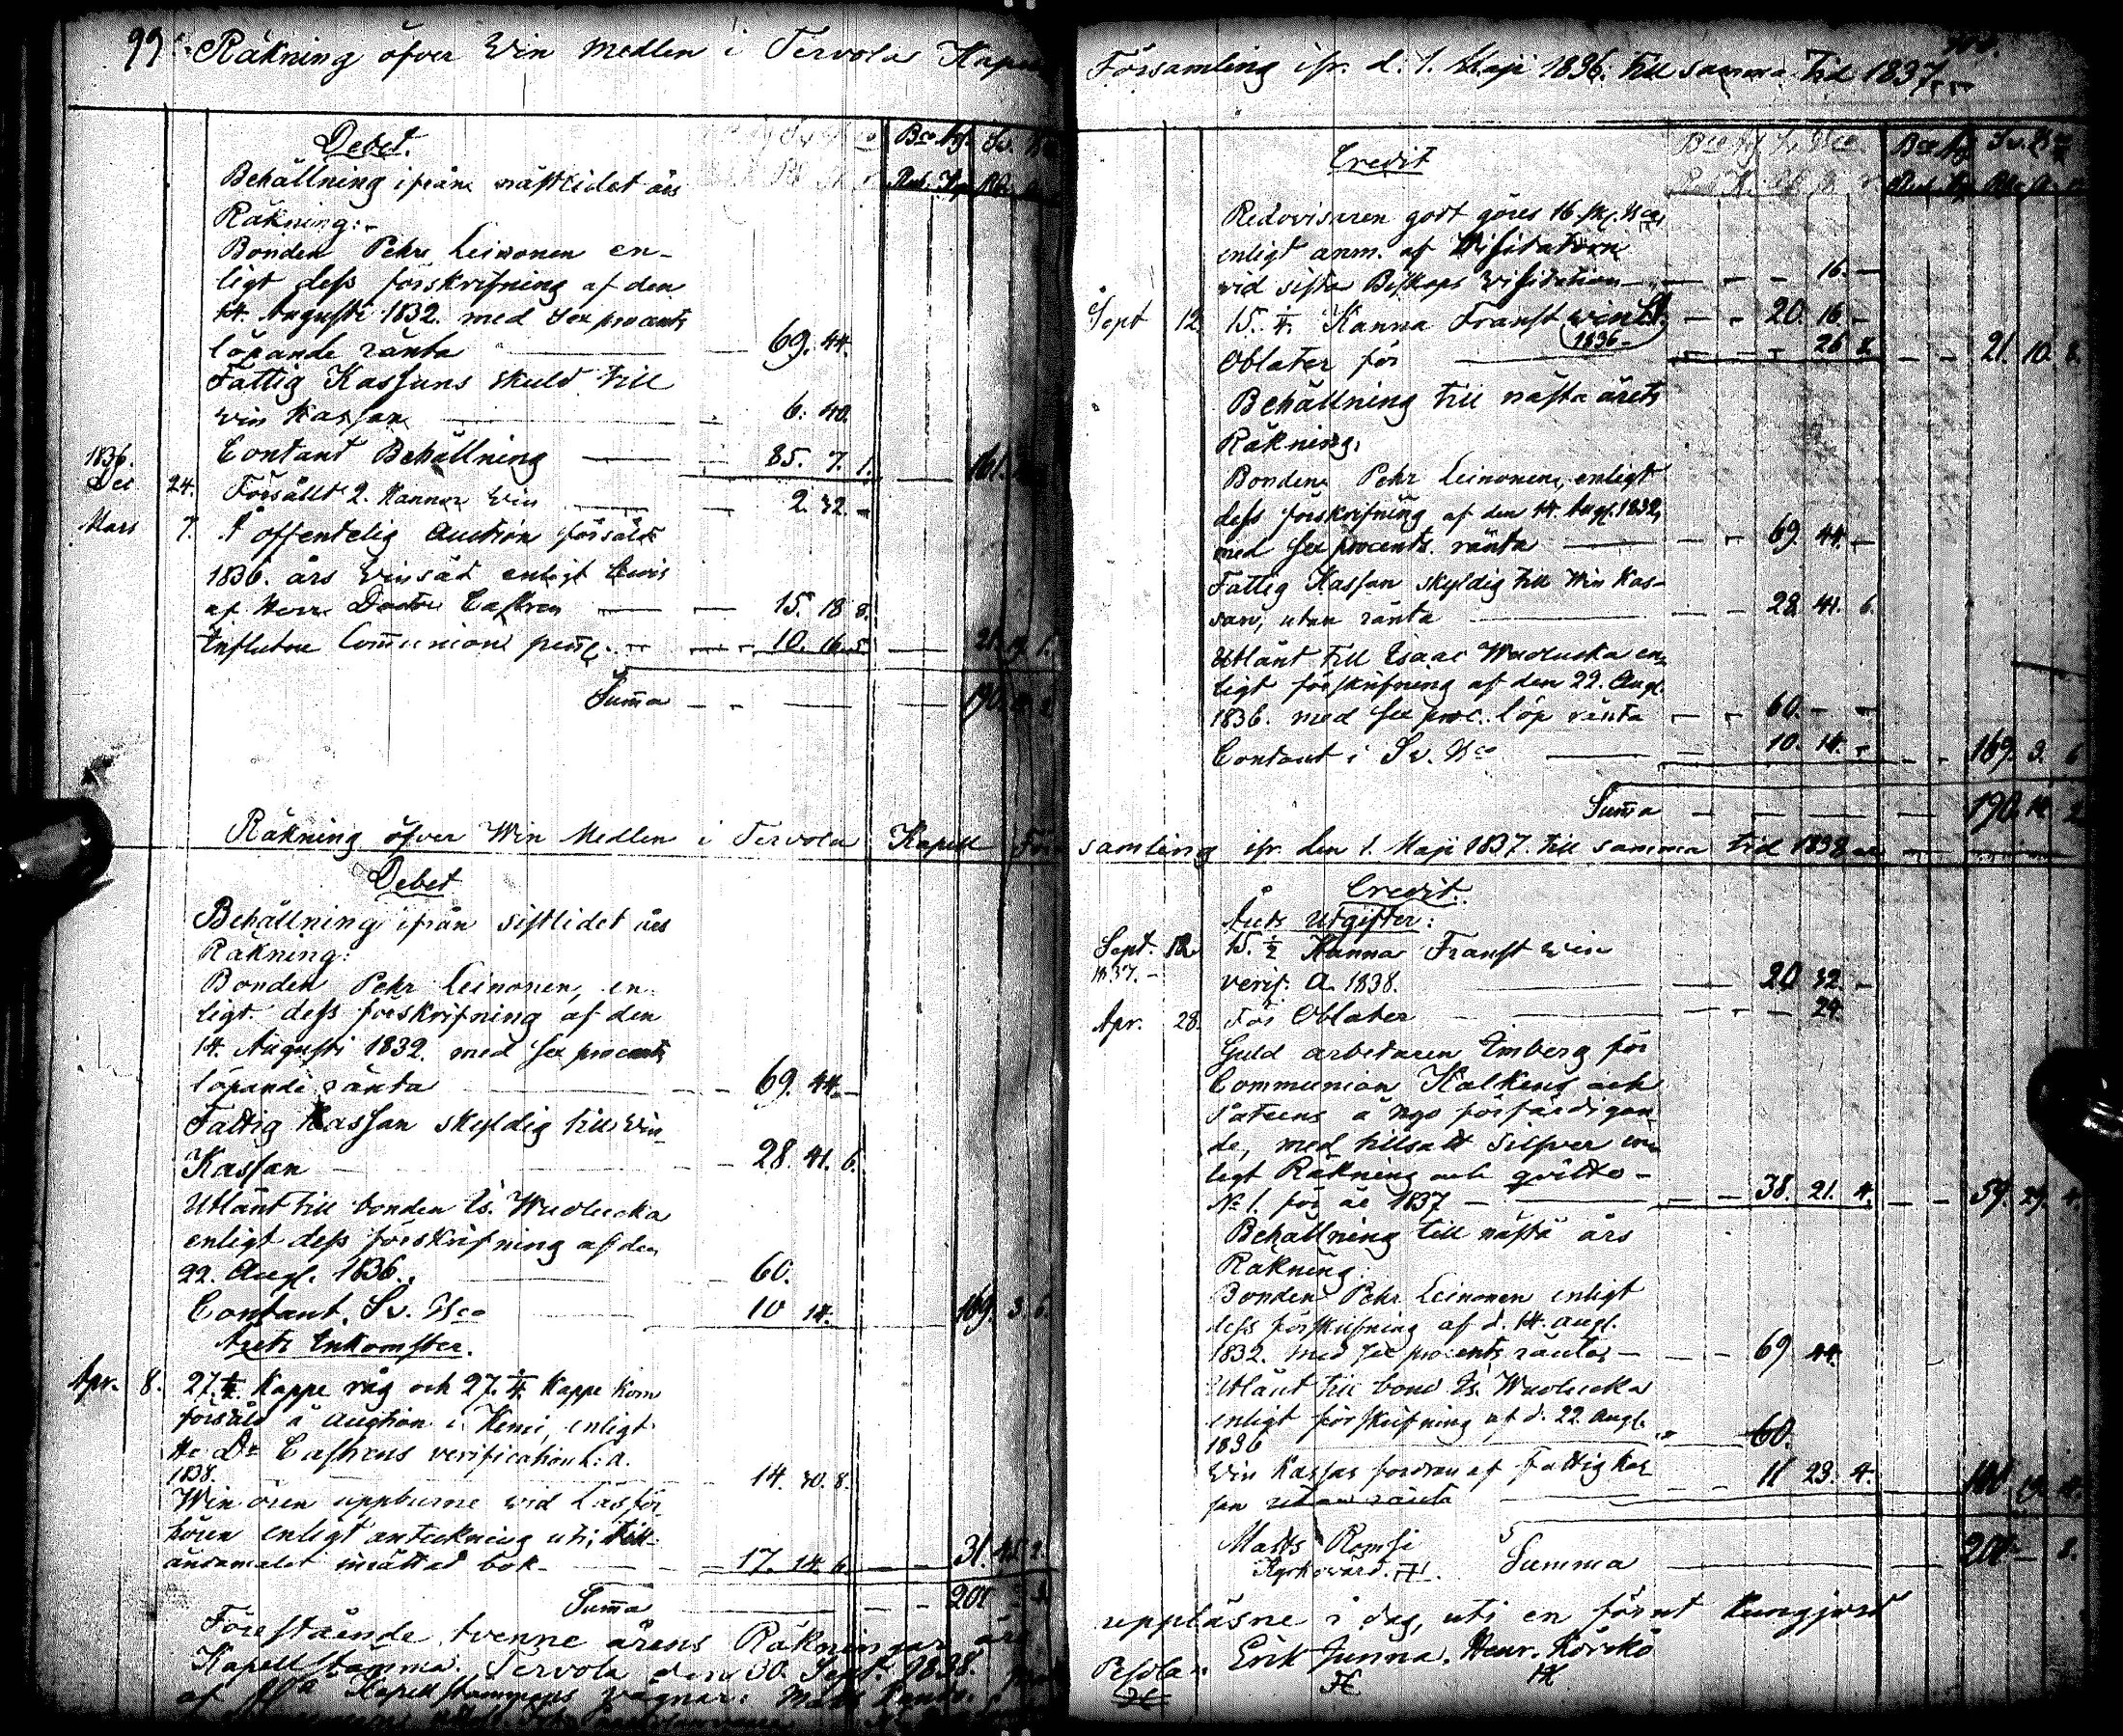 99. Räkning öfver Win Medlen i Tervola Kapell
Debet.
Bco Ag. Sv. Bco
Behållning ifrån nästlidet års
Räkning:
Bonden Pehr Leinonen en-
ligt dess förskrifning af den
14. Augusti 1832. med sex procents
löpande ränta 69. 44.
Fattig Kassans skuld till
Win Kassan 6. 40.
Contant Behållning 85. 7. 1. 161.
1836.
Dec 24. Försåldt 2. Kannor Win 2. 32. -
Mars 7. Å offentelig Auction försåldt
1836. års Winsäd enligt bevis
af Herr Doctor Castrén 15. 18 8.
Influtne Communion penng. 10. 16. 5. 1.
Summa 190.
Räkning öfver Win Medlen i Tervola Kapell För-
Debet
Behållning ifrån sistlidet års
Räkning:
Bonden Pehr Leinonen, en-
ligt dess förskrifning af den
14. Augusti 1832. med sex procents
löpande ränta 69. 44. -
Fattig Kassan skyldig till Win
Kassan 28. 41. 6.
Utlånt till bonden Is. Wuolucka
enligt dess förskrifning af den
22. Aug. 1836. 60.
Contant. Sv. Bco 10 14. 169. 3. 6.
Årets Inkomster.
Apr. 8. 27. 1/4. Kappe råg och 27. 1/4. Kappe korn
försåld å auction i Kemi, enligt
Hr Dr Castréns verification L: a.
1838. 14. 30. 8.
Win ören uppburne vid Läsför-
hören enligt anteckning uti, till
ändamålet inrättad bok 17. 14. 6. 31. 45. 2.
Summa 201
Förestående tvenne årens Räkningar äro
Kapell stämma. Tervola den 30. Sept. 1838.
af Kapell stämmans vägnar: Mats
Församling ifr. d. 1. Maji 1836. till samma tid 1837.
Credit
Bco Ag Sv. Bco
Redovisaren godt göres 16. sk. Bco,
enligt anm. af Visitatorn
vid sista Biskops Visitation 16. -
Sept 12. 15. 1/4. Kanna Franst win 20. 16. -
Oblater för 1836 26 8. 21. 10. 8.
Behållning till nästa årets
Räkning,
Bonden Pehr Leinonen, enligt
dess förskrifning af den 14. Aug. 1832,
med sex procents ränta 69. 44. -
Fattig Kassan skyldig till Win Kas-
san, utan ränta 28. 41. 6.
Utlånt till Isaac Wuolucka en-
ligt förskrifning af den 22. Aug.
1836. med sex proc. löp ränta 60. - -
Contant i Sv. Bco 10. 14. - 169. 3. 6
Summa 190. 14. 2
samling ifr. den 1. Maji 1837. till samma tid 1838
Credit.
Årets utgifter:
Sept. 12 15. 1/2 Kanna Franst win
1837. - verif. A. 1838. 20 32. -
Apr. 28. För Oblater 24.
Guld arbetaren Imberg för
Communion Kalkens och
Patens å nyo förfärdigan-
de, med tillsatt silfver en-
ligt Räkning och qvitto -
No 1. för år 1837 - 38. 21. 4. 59. 29. 4.
Behållning till nästa års
Räkning:
Bonden Pehr Leinonen enligt
dess förskrifning af d. 14. aug.
1832. med sex procents räntor - 69 44.
Utlånt till bond. Is. Wuolucka
enligt förskrifning af d. 22. Aug.
1836 60.
Win Kassas fordran af Fattig Kas-
san utan ränta 11 23. 4. 141. 19. 4.
Matts Romsi
Kyrkovärd. Summa 201 - 8.
uppläsne i dag, uti en förut kungjord
Erik Junna. Henr. Körckö